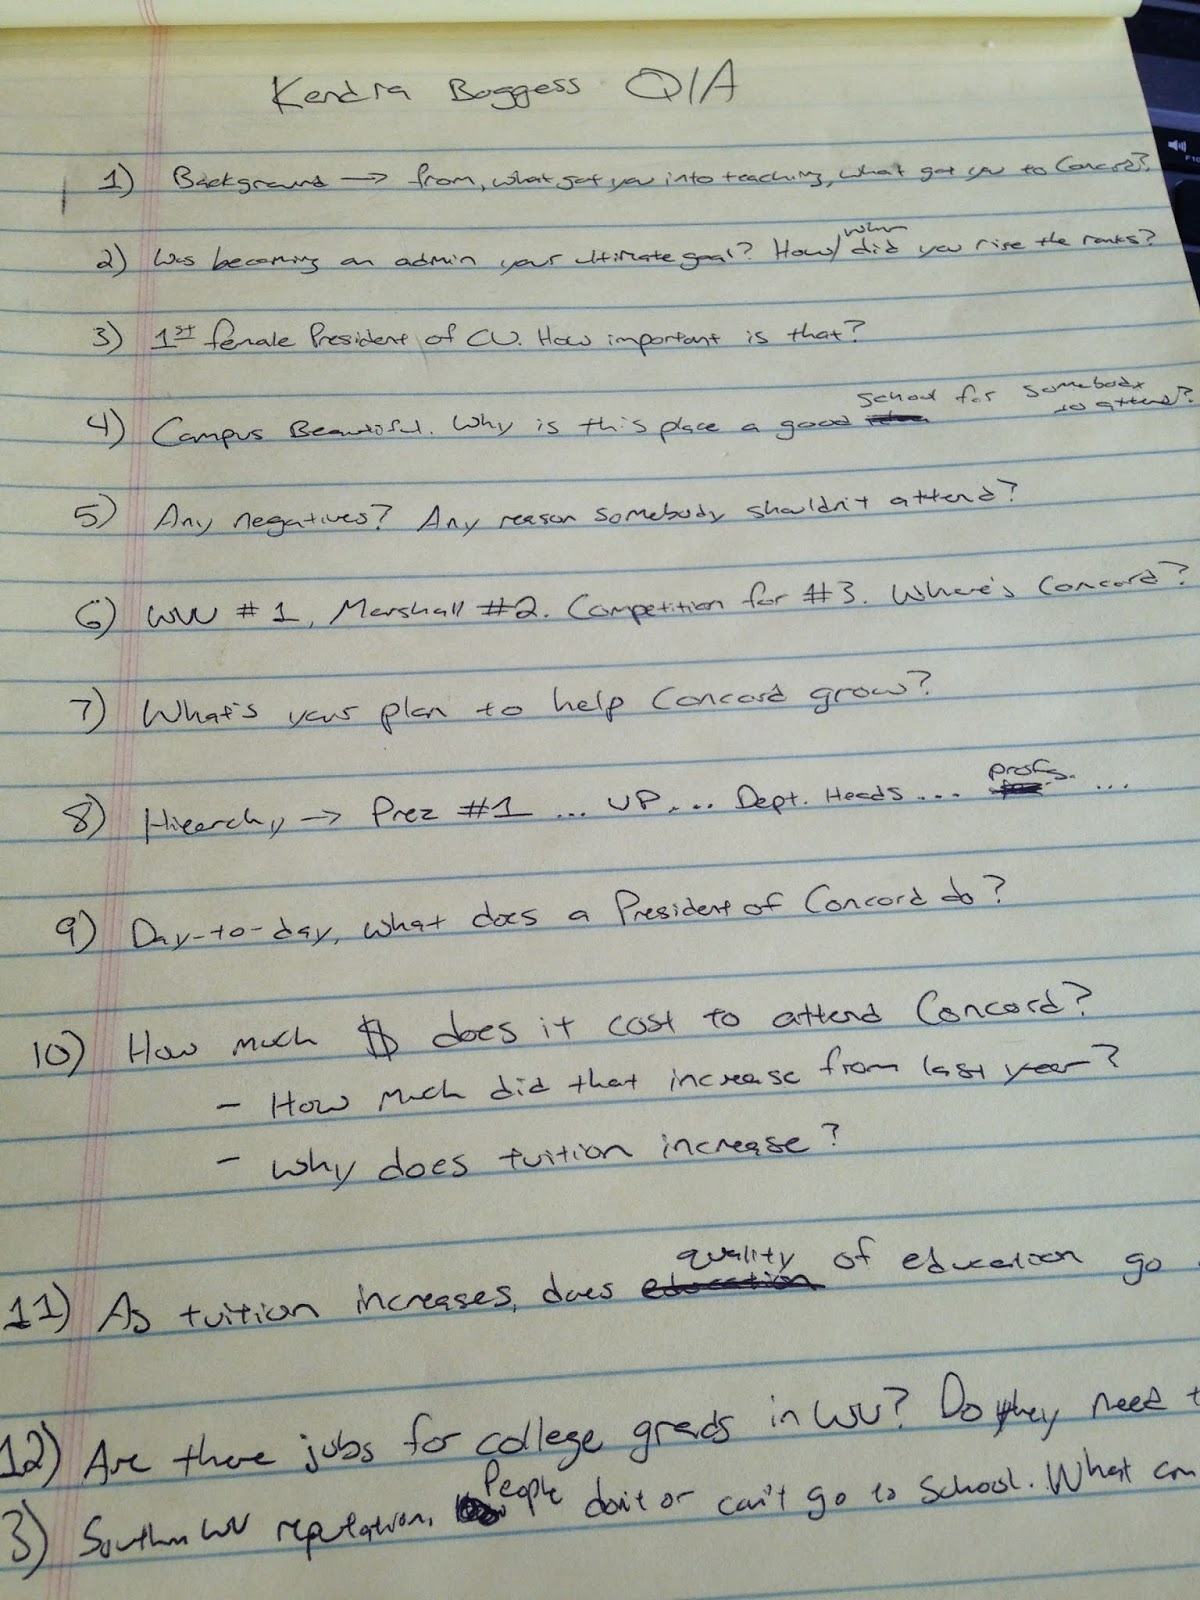 Kendra Boggess Q/A
1) Background → from, what got you into teaching, what got you to Concord?
when
2) Was becoming an admin your ultimate goal? How/ did you rise the ranks?
3) 1st female President of CU. How important is that?
school for somebody
to attend?
4) Campus Beautiful. Why is this place a good
5) Any negatives? Any reason somebody shouldn't attend?
6) WVU #1, Marshall #2. Competition for #3. Where's Concord?
7) What's your plan to help Concord grow?
profs.
8) Hierarchy → Prez #1 ... VP.... Dept. Heads... ...
9) Day-to-day, what does a President of Concord do?
10) How much $ does it cost to attend Concord?
- How much did that increase from last year?
- Why does tuition increase?
quality of education go
11) As tuition increases, does education
12) Are there jobs for college grads in WV? Do they need
People
3) Southern WV reputation. don't or can't go to school. What can